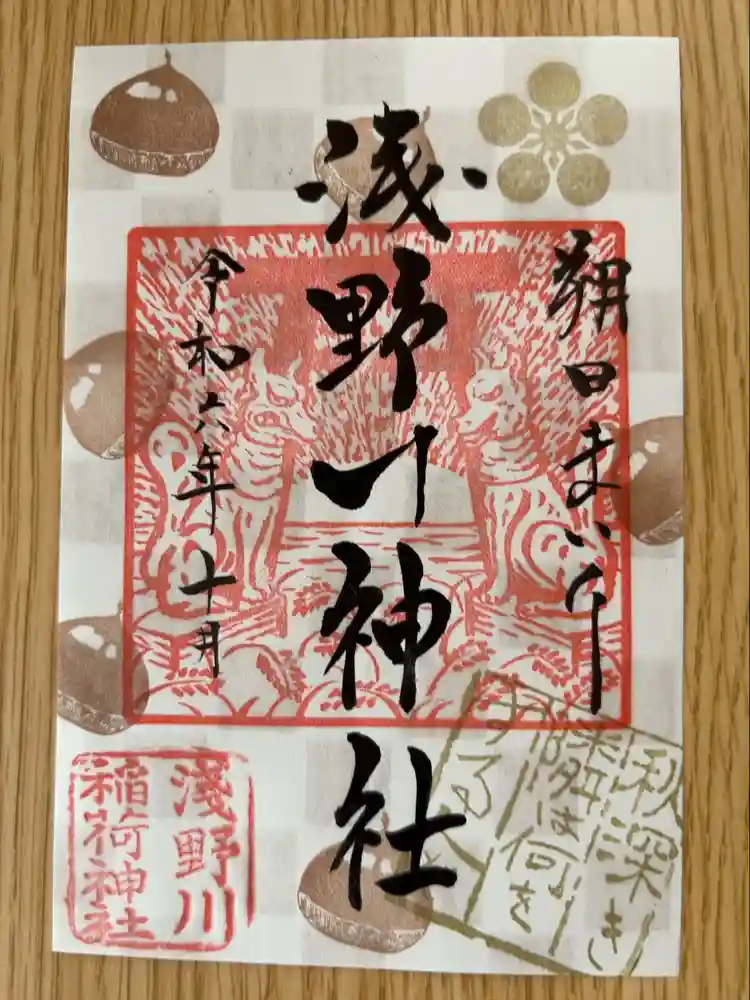 朔日まいり
浅野川神社
令和六年十月
淺野川
稲荷神社
秋深き
隣は何を
する人